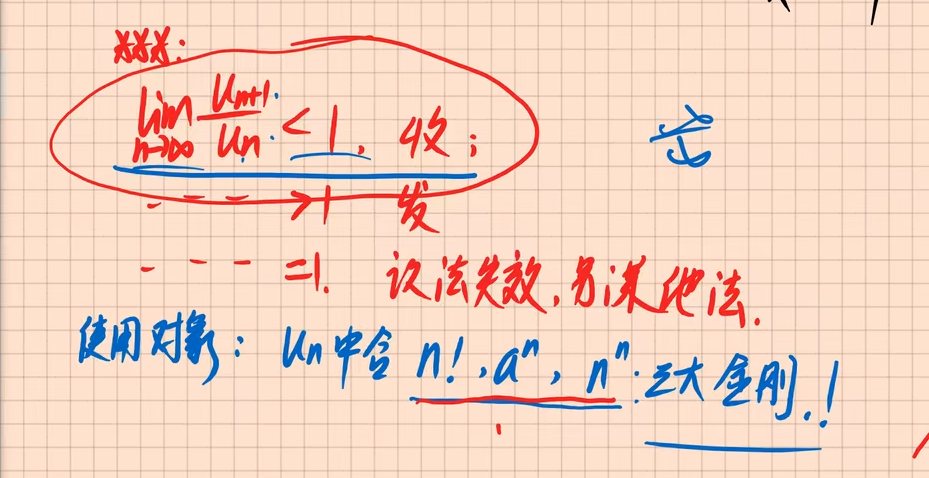 lim n→∞ Un+1/Un < 1, 收;
- - - >1 发
- - - =1. 该法失效,另谋他法.
使用对象: Un中含 n!, aⁿ, nⁿ: 三大金刚.!